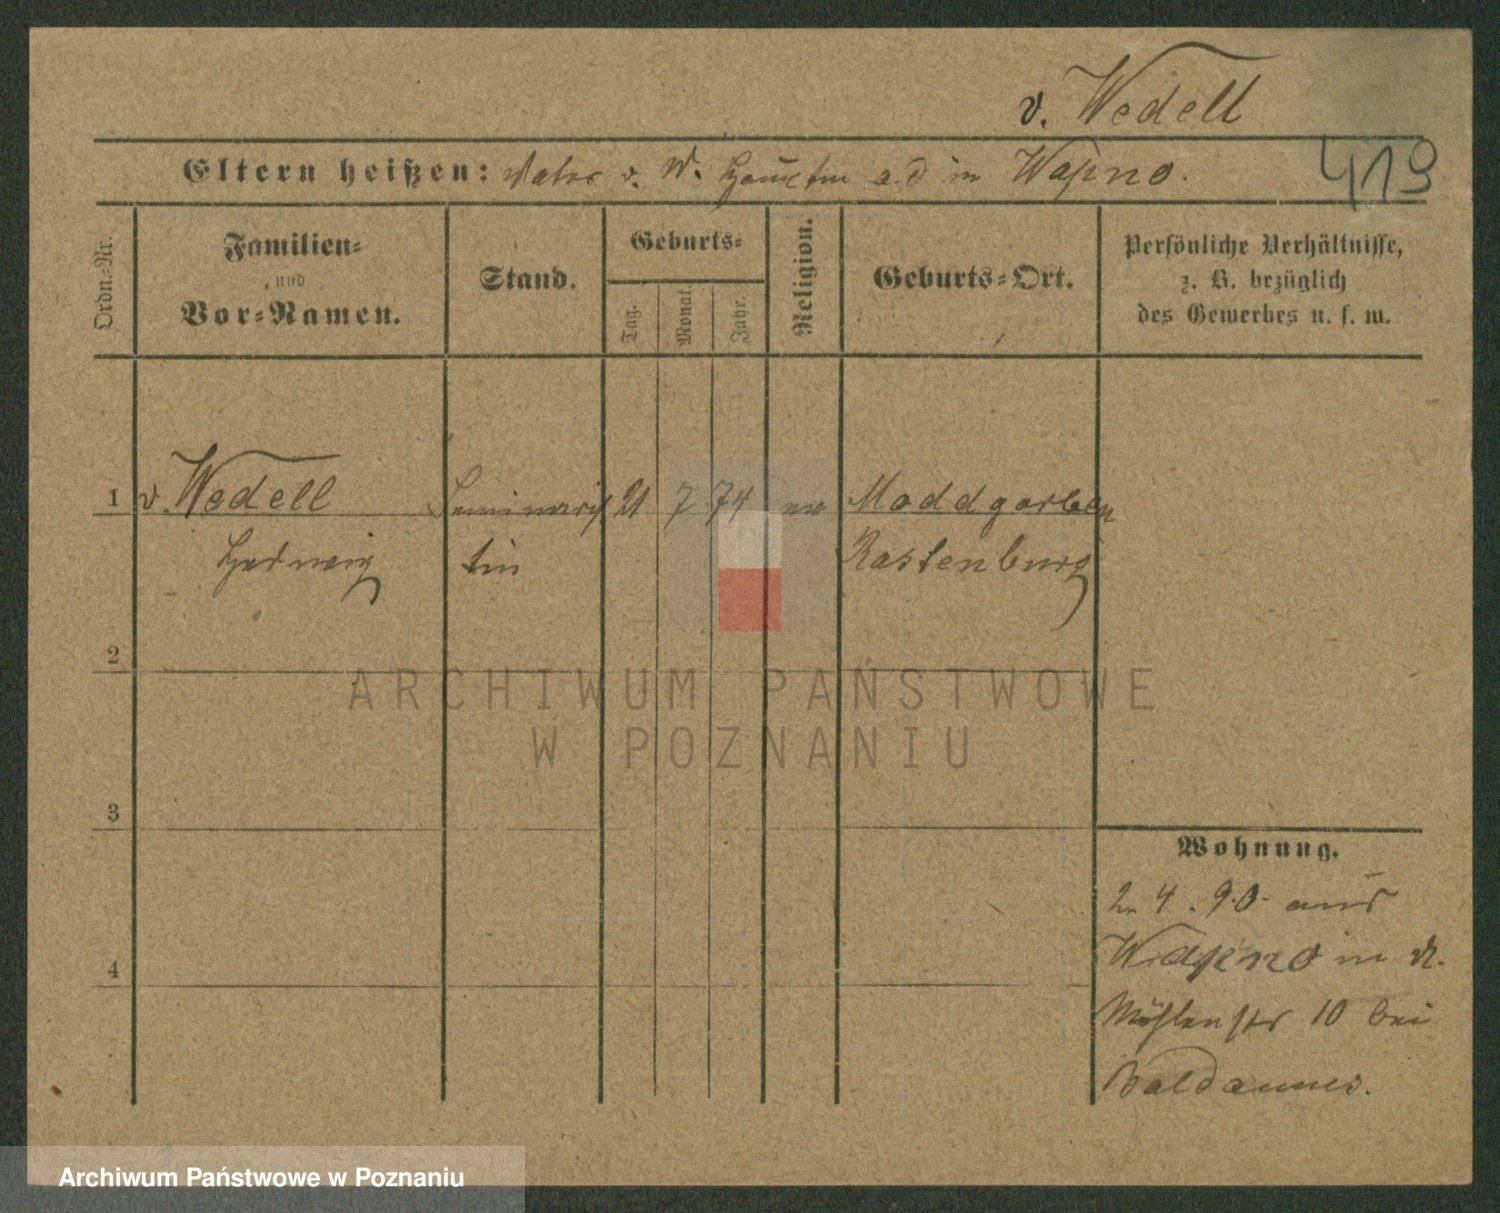 v. Wedell
Eltern heißen: Vater v. W. Hauptm a D in Wapno.
419
Ordn.-Nr.
Familien-
und
Vor-Namen.
Stand.
Geburts-
Tag.
Monat.
Jahr.
Religion.
Geburts-Ort.
Persönliche Verhältnisse,
z. B. bezüglich
des Gewerbes u. s. w.
1 v. Wedell Seminaris 21 7 74 ev Moddgarben
Hedwig tin Rastenburg
2
3
4
Wohnung.
2. 4. 90. aus
Wapno in
Mühlenstr 10 bei
ARCHIWUM PAŃSTWOWE
W POZNANIU
Archiwum Państwowe w Poznaniu